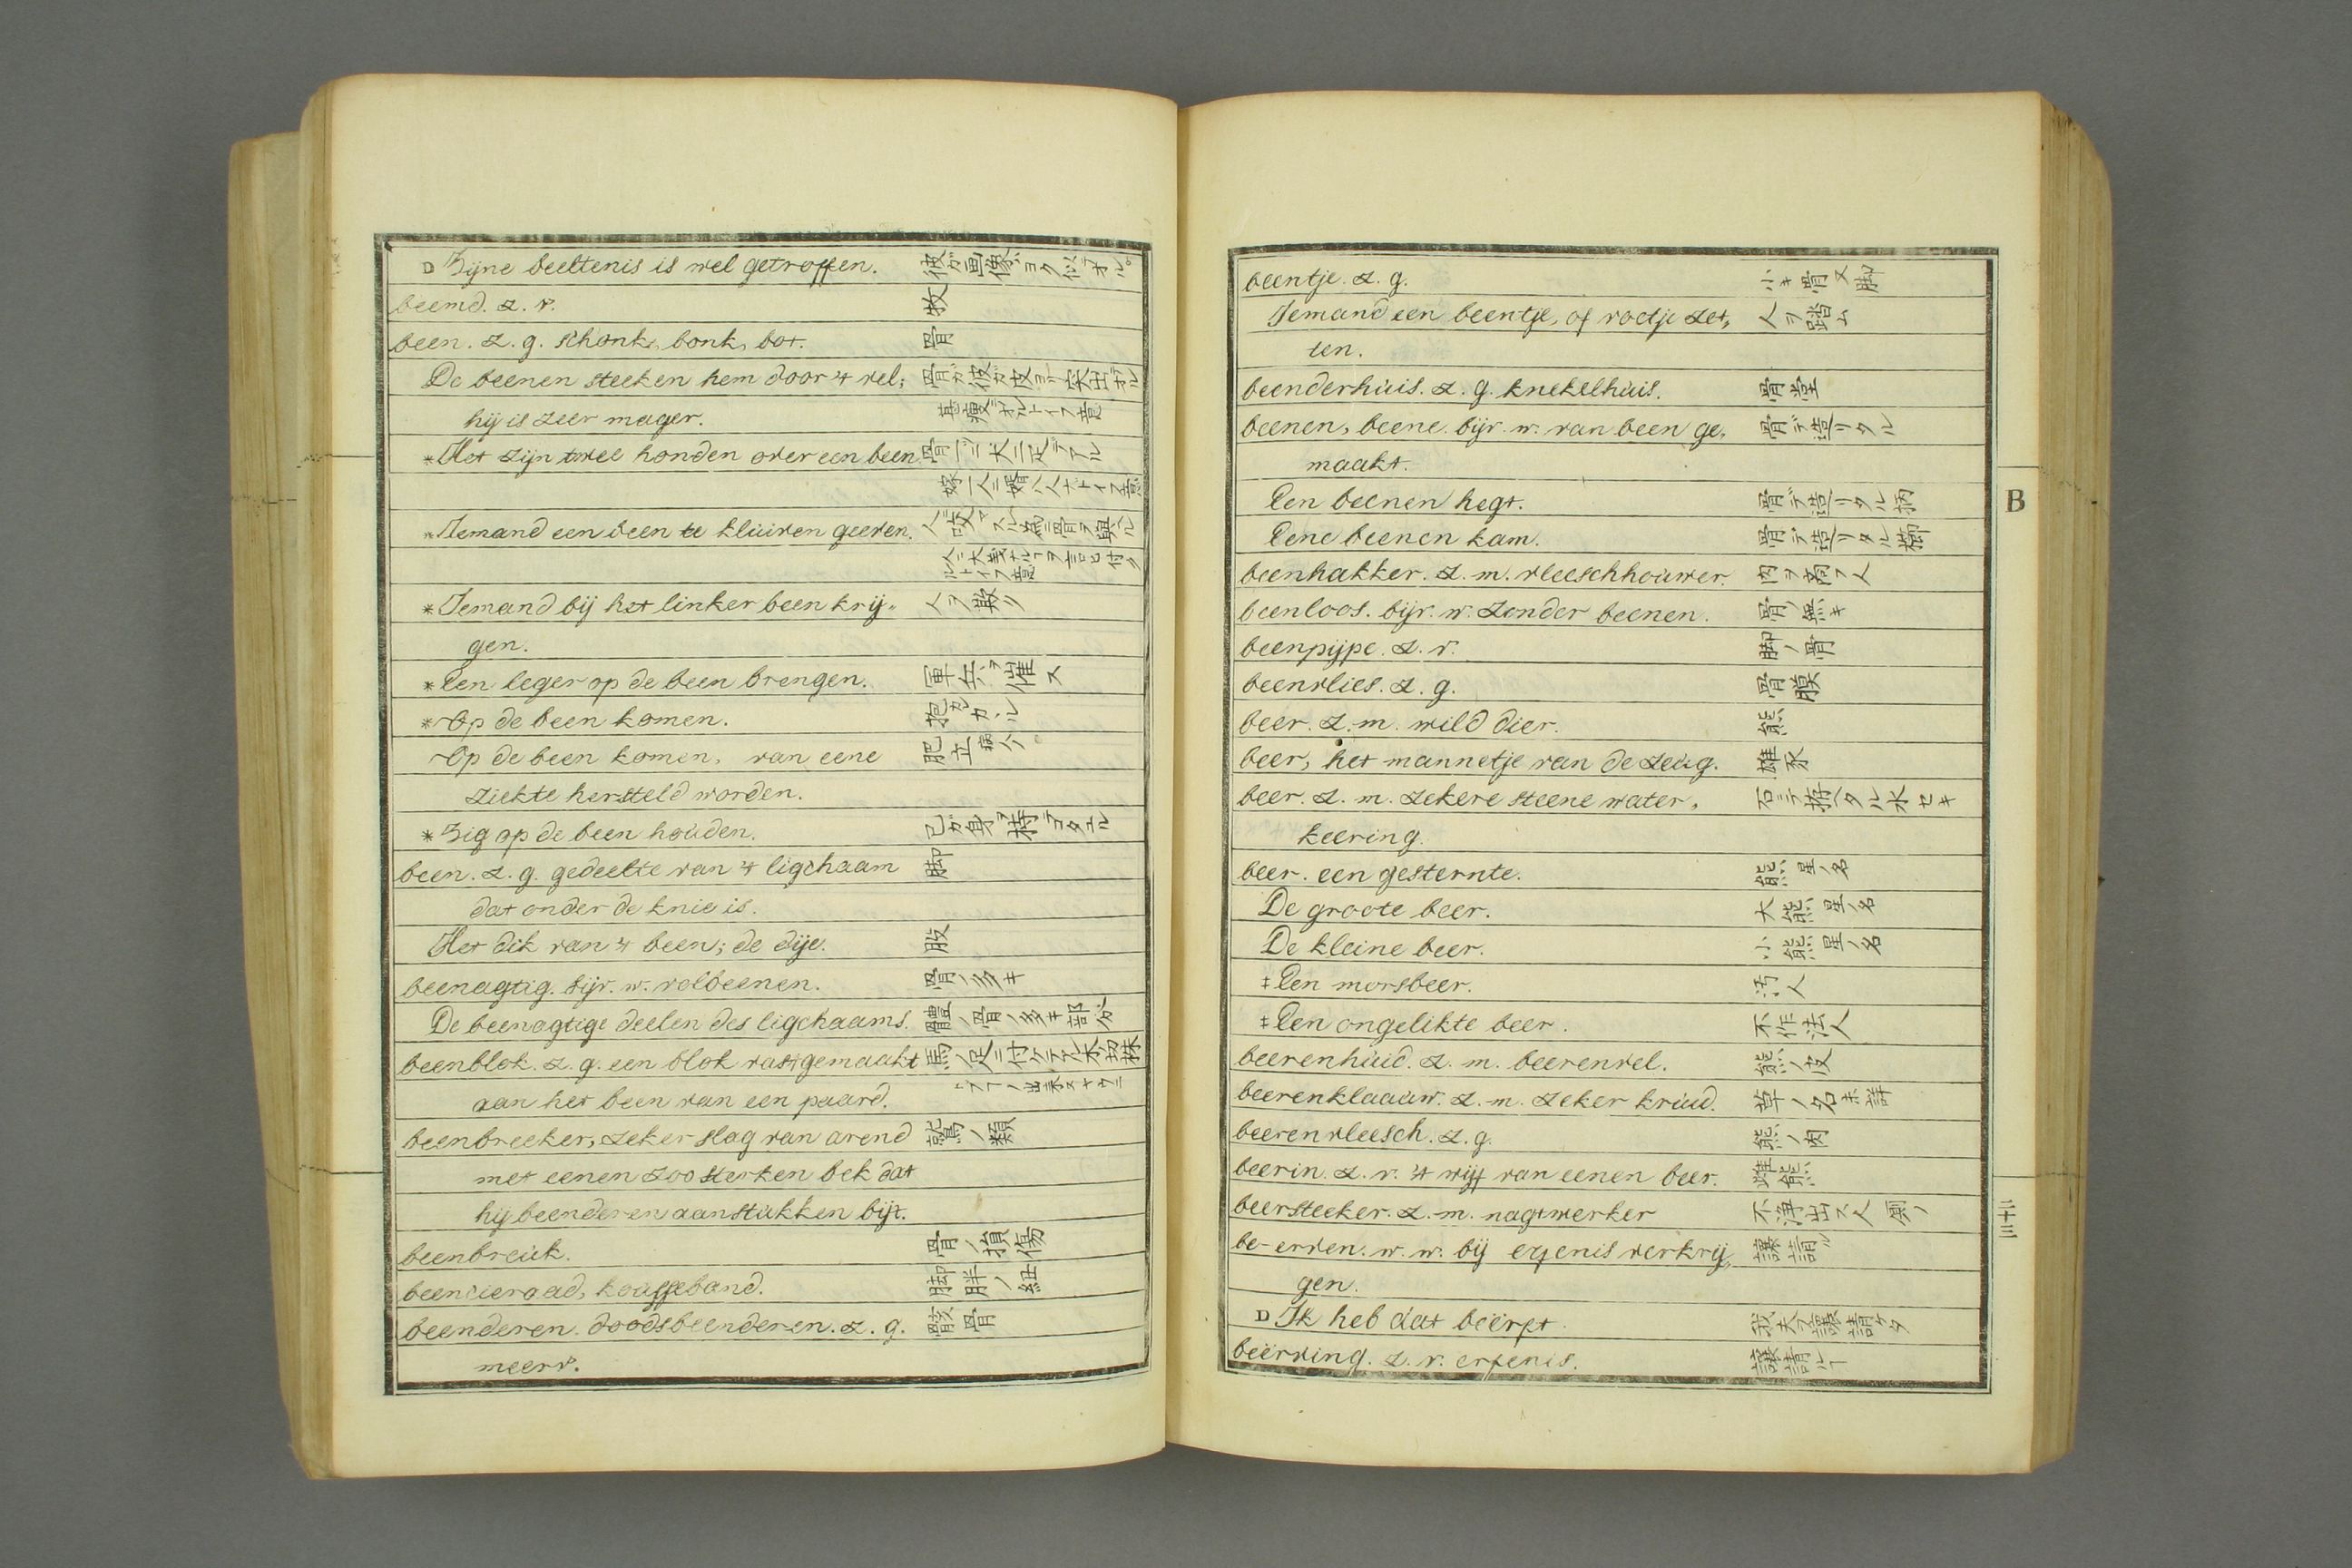 D Zijne beeltenis is wel getroffen. 彼ガ画像ガヨク似テオル
beemd. z. v. 牧
been. z. g. schonk, bonk, bot. 骨
De beenen steeken hem door 't vel;
hij is zeer mager. 甚痩テオルトイフ意
* Het zijn twee honden over een been 骨一ニ犬二疋デアル
* Iemand een been te kluiven geeven.
* Iemand bij het linker been krij„ 人ヲ欺ク
gen.
* Een leger op de been brengen. 軍兵ヲ催ス
* Op de been komen.
Op de been komen, van eene 肥立 病人ノ
ziekte hersteld worden.
* Zig op de been houden.
been. z. g. gedeelte van 't ligchaam 脚
dat onder de knie is.
Het dik van 't been; de dije. 股
beenagtig. bijv. w. volbeenen. 骨ノ多キ
De beenagtige deelen des ligchaams. 體ノ骨ノ多キ部分
beenblok. z. g. een blok vast gemaakt
aan het been van een paard.
beenbreeker, zeker slag van arend 鷲ノ類
met eenen zoo sterken bek dat
hij beenderen aan stukken bijt.
beenbreuk. 骨ノ損傷
beencieraad, kousseband. 脚胖ノ紐
beenderen. doodsbeenderen. z. g. 骸骨
meerv.
beentje. z. g. 小キ骨又脚
Iemand een beentje, of voetje zet„ 人ヲ蹈ム
ten.
beenderhuis. z. g. knekelhuis. 骨堂
beenen, beene. bijv. w. van been ge„ 骨デ造リタル
maakt.
Een beenen hegt. 骨デ造リタル柄
Eene beenen kam. 骨デ造リタル櫛
beenhakker. z. m. vleeschhouwer. 肉ヲ商フ人
beenloos. bijv. w. zonder beenen. 骨ノ無キ
beenpijpe. z. v. 脚ノ骨
beenvlies. z. g. 骨膜
beer. z. m. wild dier. 熊
beer, het mannetje van de zeug. 雄豕
beer. z. m. zekere steene water„ 石ニテ拵ヘタル水セキ
keering.
beer. een gesternte. 熊 星ノ名
De groote beer. 大熊 星ノ名
De kleine beer. 小熊 星ノ名
‡ Een morsbeer. 汚人
‡ Een ongelikte beer. 不作法人
beerenhuid. z. m. beerenvel. 熊ノ皮
beerenklaauw. z. m. zeker kruid. 草ノ名 未詳
beerenvleesch. z. g. 熊ノ肉
beerin. z. v. 't wijf van eenen beer. 雌熊
beersteeker. z. m. nagtwerker 不浄出ス人 厠ノ
be-erven. w. w. bij erfenis verkrij„ 讓請ル
gen.
D Ik heb dat beërft. 我夫ヲ讓請ケタ
beërving. z. v. erfenis. 讓請ルヿ
B
三十三